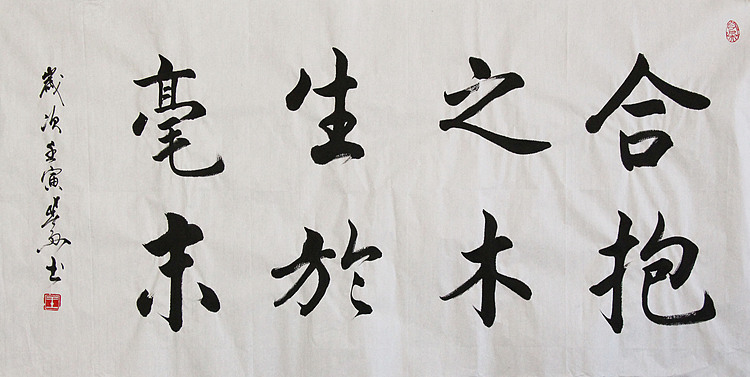 合抱
之木
生於
毫末
歲次壬寅楚愚书